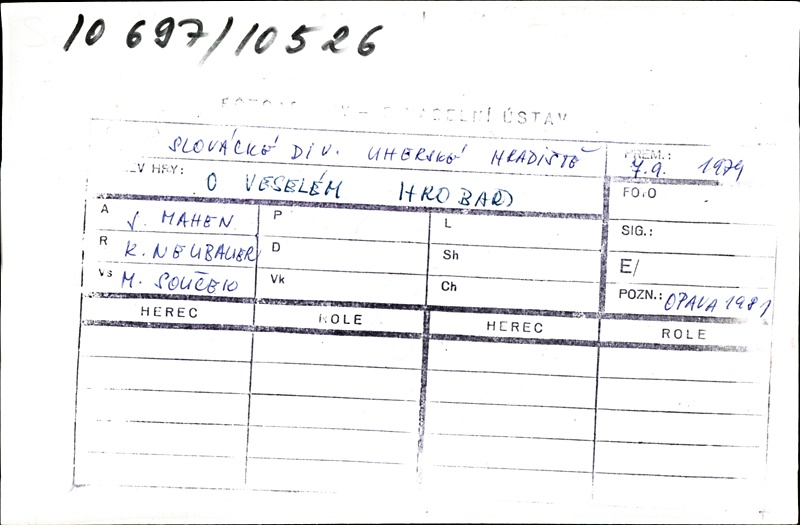 10 697/10526
DELNÍ ÚSTAV
SLOVÁCKÉ DIV. UHERSKÉ HRADIŠTĚ
PREM.: 7.9. 1979
EV HRY: O VESELÉM HROBAŘI
FOTO
A J. MAHEN
P
L
SIG.:
R K. NEUBAUER
D
Sh
E/
Vs M. SOUČEK
Vk
Ch
POZN.: OPAVA 1981
HEREC ROLE HEREC ROLE